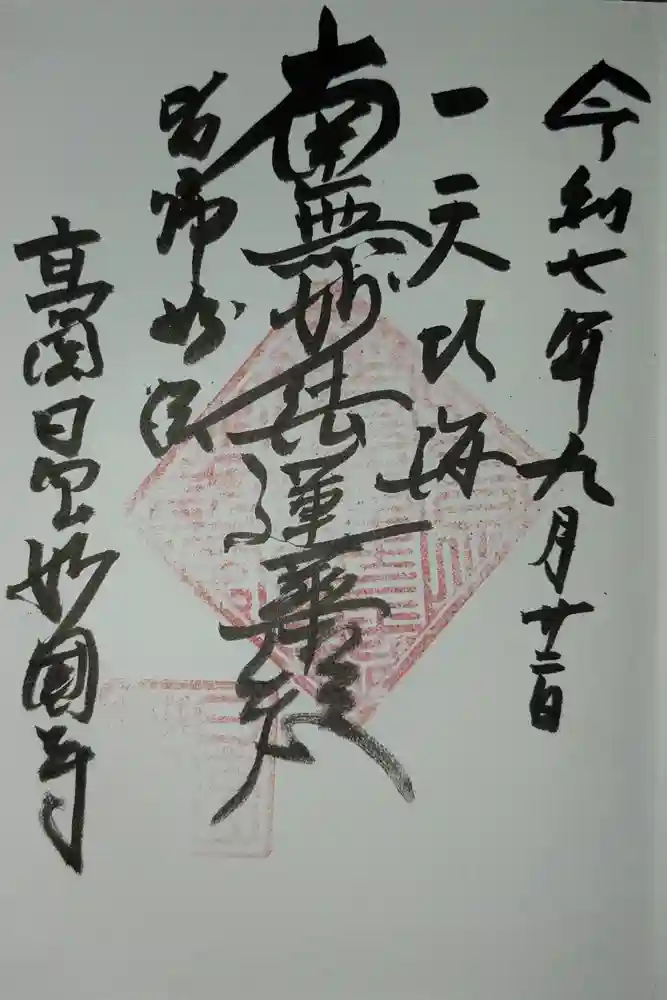 今和七年九月廿二日
一天四海
南無妙法蓮華経
皆帰妙法
高国山妙國寺